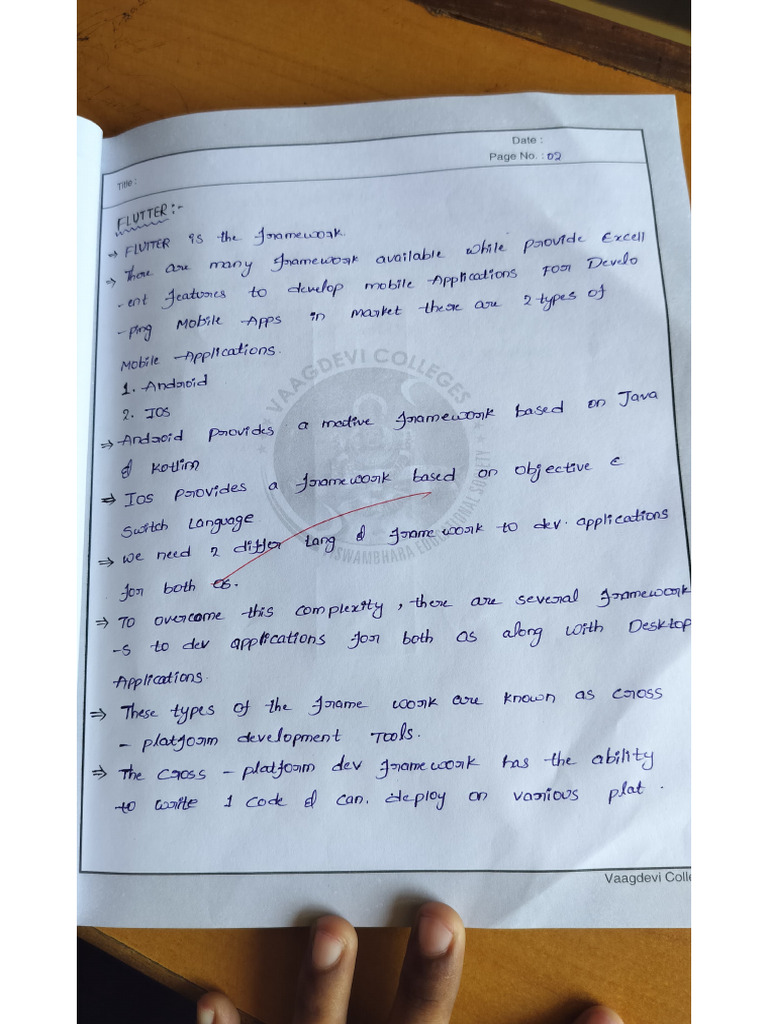 Date :
Page No. : 02
Title :
FLUTTER:-
⇒ FLUTTER is the framework.
⇒ There are many framework available while provide Excell
-ent features to develop mobile Applications For Develo
-ping Mobile Apps in market there are 2 types of
Mobile Applications.
1. Android
2. IOS
⇒ Android provides a native framework based on Java
& Kotlin
⇒ Ios provides a framework based on objective c
Switch Language
⇒ we need 2 differ lang & frame work to dev. applications
for both os.
⇒ To overcome this complexity, there are several framework
-s to dev applications for both os along with Desktop
Applications.
⇒ These types of the frame work are known as cross
- platform development Tools.
⇒ The cross - platform dev framework has the ability
to write 1 code & can. deploy on various plat.
VAAGDEVI COLLEGES
VISWAMBHARA EDUCATIONAL SOCIETY
Vaagdevi Colle